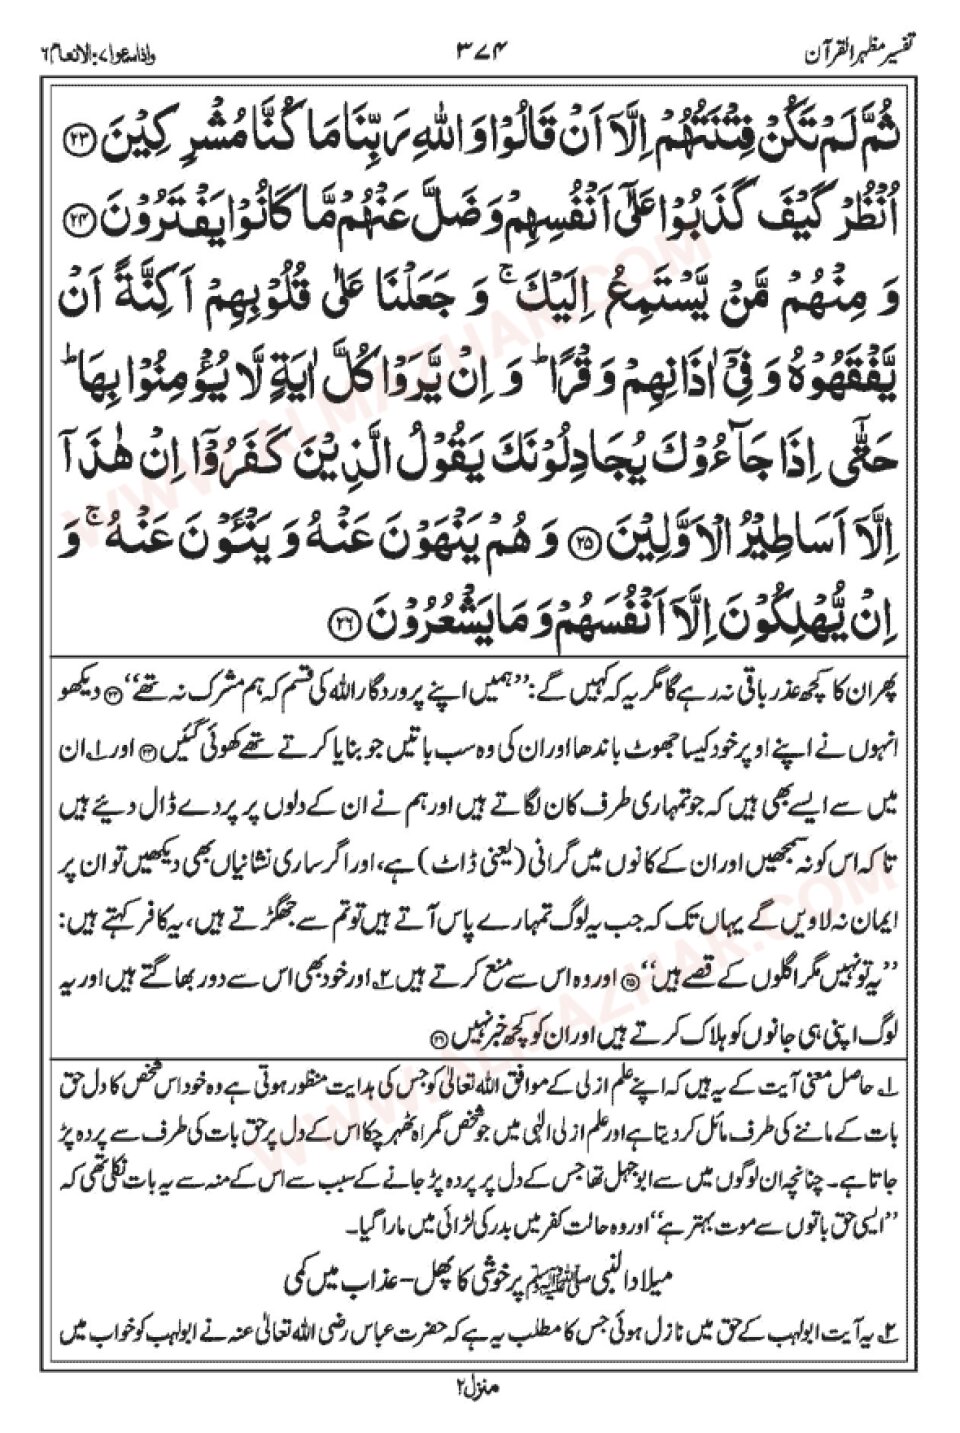 تفسیر مظہر القرآن
۳۷۴
واذاسمعوا ۷: الانعام ۶
ثُمَّ لَمْ تَكُنْ فِتْنَتُهُمْ اِلَّاۤ اَنْ قَالُوْا وَ اللّٰهِ رَبِّنَا مَا كُنَّا مُشْرِكِیْنَ ﴿۲۳﴾
اُنْظُرْ كَیْفَ كَذَبُوْا عَلٰۤی اَنْفُسِهِمْ وَ ضَلَّ عَنْهُمْ مَّا كَانُوْا یَفْتَرُوْنَ ﴿۲۴﴾
وَ مِنْهُمْ مَّنْ یَّسْتَمِعُ اِلَیْكَ ۚ وَ جَعَلْنَا عَلٰی قُلُوْبِهِمْ اَكِنَّةً اَنْ
یَّفْقَهُوْهُ وَ فِیْۤ اٰذَانِهِمْ وَقْرًا ؕ وَ اِنْ یَّرَوْا كُلَّ اٰیَةٍ لَّا یُؤْمِنُوْا بِهَا ؕ
حَتّٰۤی اِذَا جَآءُوْكَ یُجَادِلُوْنَكَ یَقُوْلُ الَّذِیْنَ كَفَرُوْۤا اِنْ هٰذَاۤ
اِلَّاۤ اَسَاطِیْرُ الْاَوَّلِیْنَ ﴿۲۵﴾ وَ هُمْ یَنْهَوْنَ عَنْهُ وَ یَنْـَٔوْنَ عَنْهُ ۚ وَ
اِنْ یُّهْلِكُوْنَ اِلَّاۤ اَنْفُسَهُمْ وَ مَا یَشْعُرُوْنَ ﴿۲۶﴾
پھر ان کا کچھ عذر باقی نہ رہے گا مگر یہ کہ کہیں گے: ’’ہمیں اپنے پروردگار اللہ کی قسم کہ ہم مشرک نہ تھے‘‘ ﴿۲۳﴾ دیکھو
انہوں نے اپنے اوپر خود کیسا جھوٹ باندھا اور ان کی وہ سب باتیں جو بنایا کرتے تھے کھوئی گئیں ﴿۲۴﴾ اور ۱؎ ان
میں سے ایسے بھی ہیں کہ جو تمہاری طرف کان لگاتے ہیں اور ہم نے ان کے دلوں پر پردے ڈال دیئے ہیں
تاکہ اس کو نہ سمجھیں اور ان کے کانوں میں گرانی (یعنی ڈاٹ) ہے، اور اگر ساری نشانیاں بھی دیکھیں تو ان پر
ایمان نہ لاویں گے یہاں تک کہ جب یہ لوگ تمہارے پاس آتے ہیں تو تم سے جھگڑتے ہیں، یہ کافر کہتے ہیں:
’’یہ تو نہیں مگر اگلوں کے قصے ہیں‘‘ ﴿۲۵﴾ اور وہ اس سے منع کرتے ہیں ۲؎ اور خود بھی اس سے دور بھاگتے ہیں اور یہ
لوگ اپنی ہی جانوں کو ہلاک کرتے ہیں اور ان کو کچھ خبر نہیں ﴿۲۶﴾
۱؎ حاصل معنی آیت کے یہ ہیں کہ اپنے علم ازلی کے موافق اللہ تعالیٰ کو جس کی ہدایت منظور ہوتی ہے وہ خود اس شخص کا دل حق
بات کے ماننے کی طرف مائل کر دیتا ہے اور علم ازلی الٰہی میں جو شخص گمراہ ٹھہر چکا اس کے دل پر حق بات کی طرف سے پردہ پڑ
جاتا ہے۔ چنانچہ ان لوگوں میں سے ابو جہل تھا جس کے دل پر پردہ پڑ جانے کے سبب سے اس کے منہ سے یہ بات نکلی تھی کہ
’’ایسی حق باتوں سے موت بہتر ہے‘‘ اور وہ حالت کفر میں بدر کی لڑائی میں مارا گیا۔
میلاد النبی ﷺ پر خوشی کا پھل - عذاب میں کمی
۲؎ یہ آیت ابولہب کے حق میں نازل ہوئی جس کا مطلب یہ ہے کہ حضرت عباس رضی اللہ تعالیٰ عنہ نے ابولہب کو خواب میں
منزل ۲
WWW.ALMAZHAR.COM
WWW.ALMAZHAR.COM